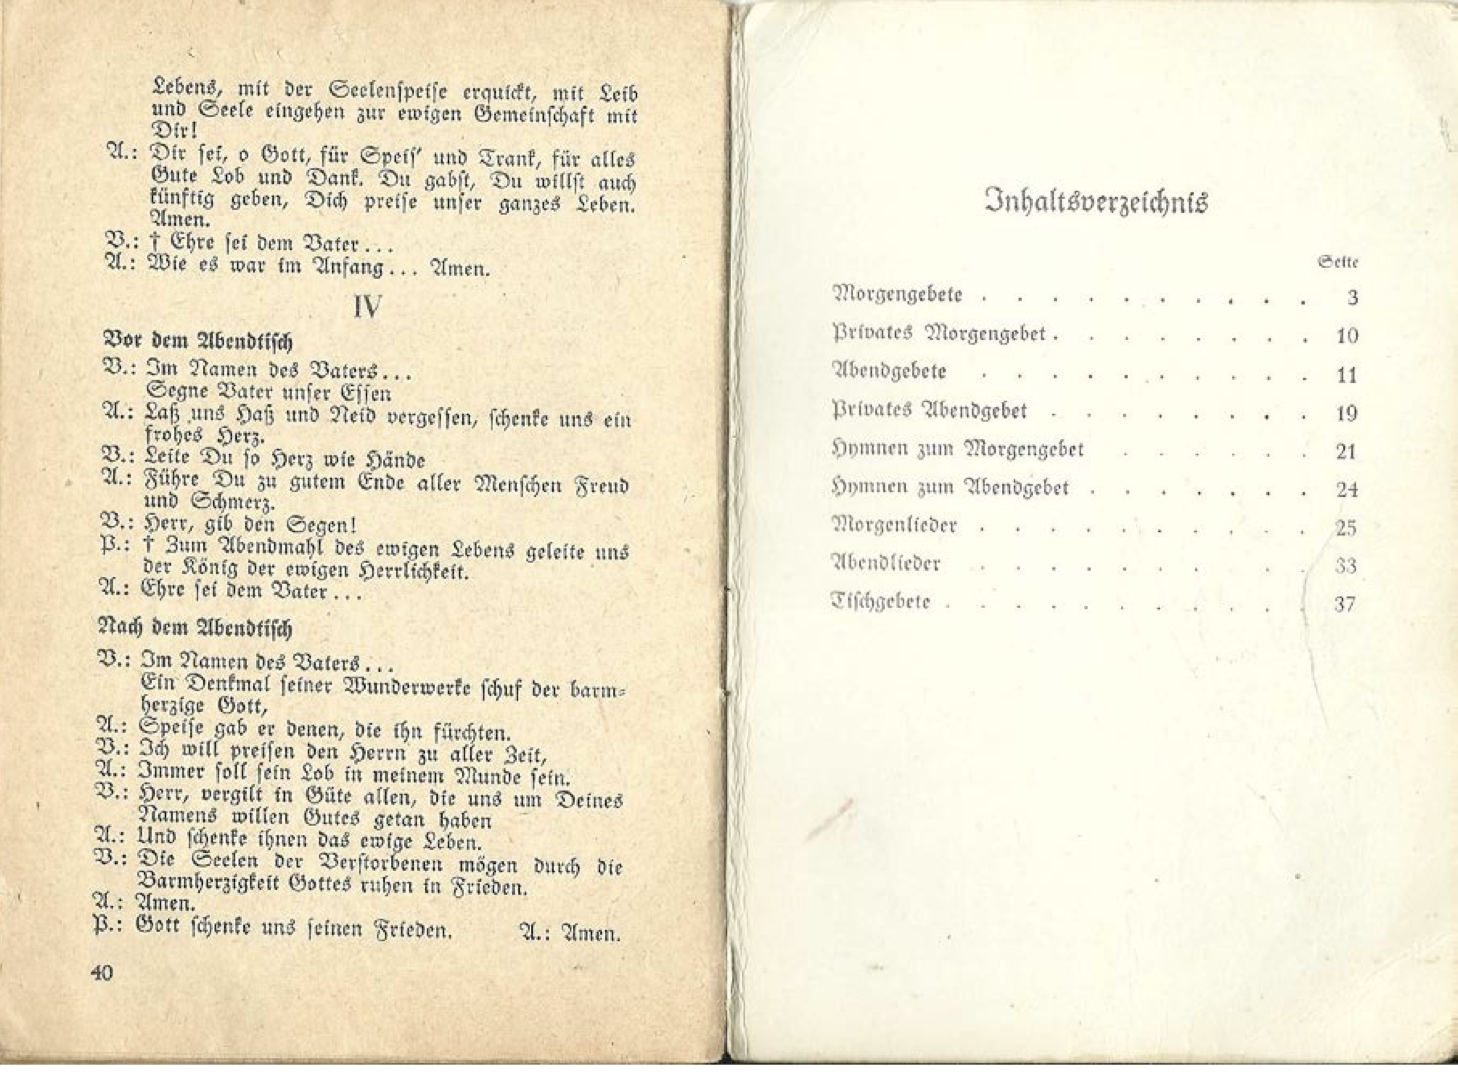 Lebens, mit der Seelenspeise erquickt, mit Leib
und Seele eingehen zur ewigen Gemeinschaft mit
Dir!
A.: Dir sei, o Gott, für Speis' und Trank, für alles
Gute Lob und Dank. Du gabst, Du willst auch
künftig geben, Dich preise unser ganzes Leben.
Amen.
V.: † Ehre sei dem Vater...
A.: Wie es war im Anfang... Amen.
IV
Vor dem Abendtisch
V.: Im Namen des Vaters...
Segne Vater unser Essen
A.: Laß uns Haß und Neid vergessen, schenke uns ein
frohes Herz.
V.: Leite Du so Herz wie Hände
A.: Führe Du zu gutem Ende aller Menschen Freud
und Schmerz.
V.: Herr, gib den Segen!
P.: † Zum Abendmahl des ewigen Lebens geleite uns
der König der ewigen Herrlichkeit.
A.: Ehre sei dem Vater...
Nach dem Abendtisch
V.: Im Namen des Vaters...
Ein Denkmal seiner Wunderwerke schuf der barm-
herzige Gott,
A.: Speise gab er denen, die ihn fürchten.
V.: Ich will preisen den Herrn zu aller Zeit,
A.: Immer soll sein Lob in meinem Munde sein.
V.: Herr, vergilt in Güte allen, die uns um Deines
Namens willen Gutes getan haben
A.: Und schenke ihnen das ewige Leben.
V.: Die Seelen der Verstorbenen mögen durch die
Barmherzigkeit Gottes ruhen in Frieden.
A.: Amen.
P.: Gott schenke uns seinen Frieden. A.: Amen.
40
Inhaltsverzeichnis
Seite
Morgengebete . . . . . . . . . . 3
Privates Morgengebet . . . . . . . . 10
Abendgebete . . . . . . . . . . 11
Privates Abendgebet . . . . . . . . 19
Hymnen zum Morgengebet . . . . . . 21
Hymnen zum Abendgebet . . . . . . . 24
Morgenlieder . . . . . . . . . . 25
Abendlieder . . . . . . . . . 33
Tischgebete . . . . . . . . . . 37